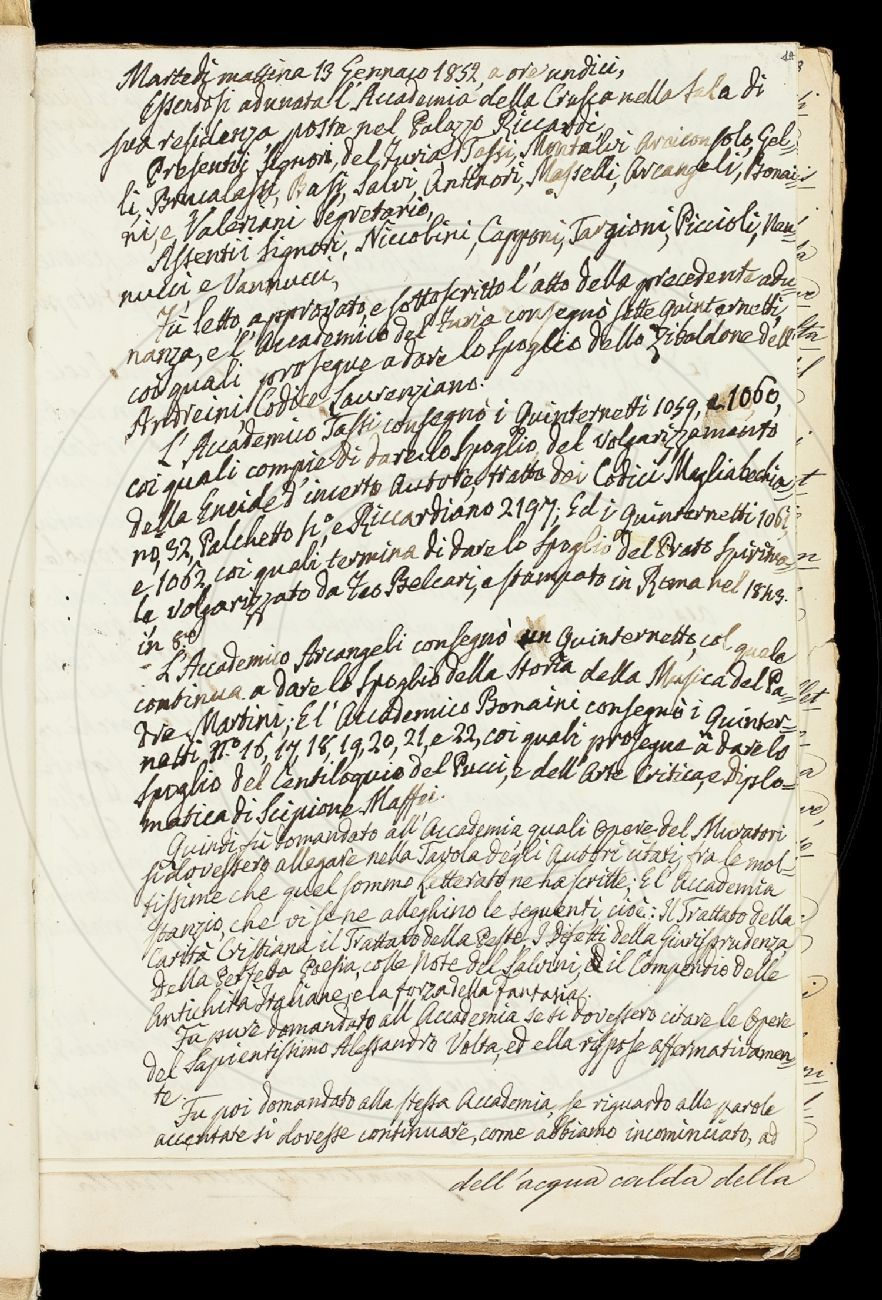 Martedì mattina 13 Gennaio 1852, a ore undici,
Essendosi adunata l'Accademia della Crusca nella Sala di
sua residenza posta nel Palazzo Riccardi,
Presenti i Signori, del Furia, Tassi, Montalvi Arciconsolo, Gel=
li, Brucalassi, Basi, Salvi, Antinori, Masselli, Arcangeli, Bonai=
ni, e Valeriani Segretario,
Assenti i Signori, Niccolini, Capponi, Targioni, Piccioli, Nan=
nucci e Vannucci,
Fù letto, approvato, e sottoscritto l'atto della precedente adu=
nanza, e l'Accademico del Furia consegnò sette Quinternetti,
coi quali prosegue a dare lo Spoglio dello Zibaldone dell'
Andreini Codice Laurenziano.
L'Accademico Tassi consegnò i Quinternetti 1059, e 1060,
coi quali compie di dare lo Spoglio del Volgarizzamento
della Eneide d'incerto Autore, tratto dai Codici Magliabechia=
no, 32, Palchetto 4.º, e Riccardiano 2197; Ed i Quinternetti 1061
e 1062, coi quali termina di dare lo Spoglio del Prato Spiritua=
le volgarizzato da Feo Belcari, e stampato in Roma nel 1843.
in 8.º
L'Accademico Arcangeli consegnò un Quinternetto, col quale
continua a dare lo Spoglio della Storia della Musica del Pa=
dre Martini; E l'Accademico Bonaini consegnò i Quinter=
netti N.º 16, 17, 18, 19, 20, 21, e 22, coi quali prosegue a dare lo
Spoglio del Centiloquio del Pucci, e dell'Arte Critica, e diplo=
matica di Scipione Maffei.
Quindi fù domandato all'Accademia quali Opere del Muratori
si dovessero allegare nella Tavola degli Autori citati, fra le mol=
tissime che quel sommo Letterato ne ha scritte; E l'Accademia
stanziò, che vi se ne alleghino le seguenti, cioè: Il Trattato della
Carità Cristiana il Trattato della Peste, I Difetti della Giurisprudenza,
Della Perfetta Poesia, colle Note del Salvini, Ed il Compendio delle
Antichità Italiane, e la forza della fantasia.
Fu pure domandato all'Accademia se si dovessero citare le Opere
del Sapientissimo Alessandro Volta, ed ella rispose affermativamen=
te.
Fu poi domandato alla stessa Accademia, se riguardo alle parole
accentate si dovesse continuare, come abbiamo incominciato, ad
dell'acqua calda della